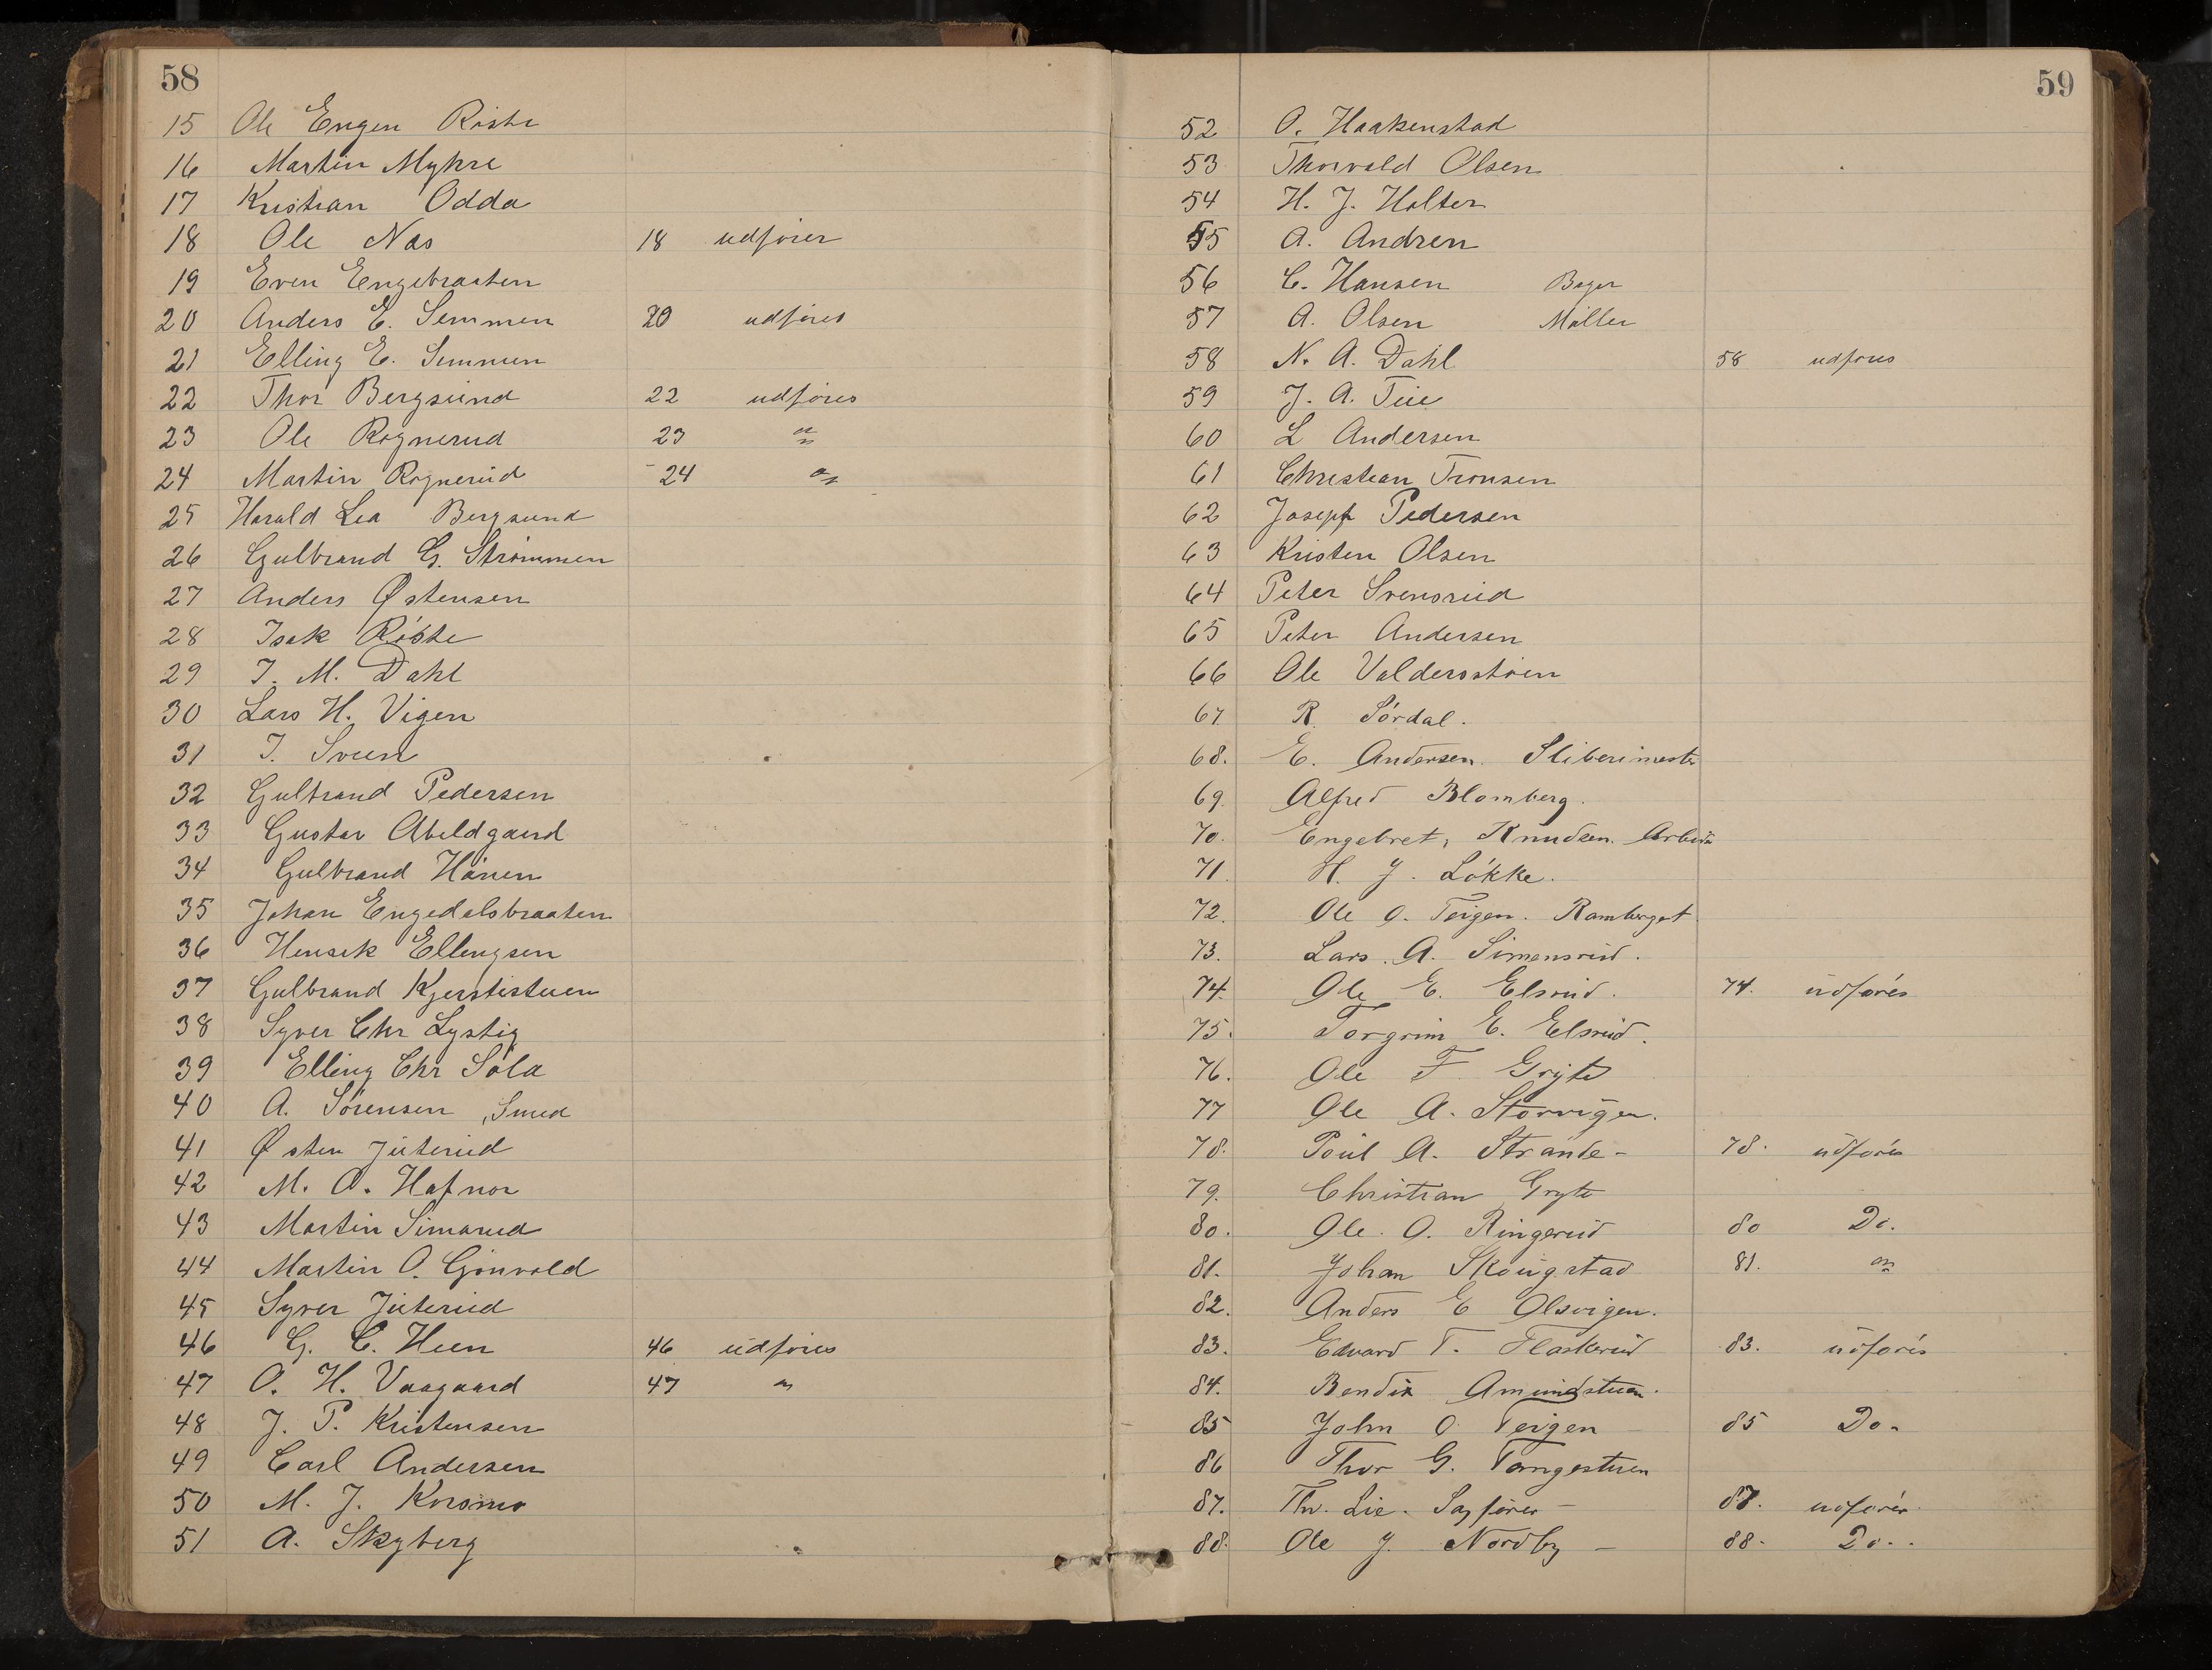 58
15 Ole Engen Röste
16 Martin Myhre
17 Kristian Odda
18 Ole Næs 18 udföres
19 Even Engebraaten
20 Anders E. Semmen 20 udföres
21 Elling E. Semmen
22 Thor Bergsund 22 udföres
23 Ole Rognerud 23 "
24 Martin Rognerud 24 "
25 Harald Lea Bergsund
26 Gulbrand G. Strömmen
27 Anders Østensen
28 Isak Röste
29 I. M. Dahl
30 Lars H. Vigen
31 I. Sveen
32 Gulbrand Pedersen
33 Gustav Abeldgaard
34 Gulbrand Hönen
35 Johan Engedalsbraaten
36 Henrik Ellingsen
37 Gulbrand Kjerstistuen
38 Syver Chr Lystig
39 Elling Chr Söla
40 A. Sörensen, Smed
41 Østen Juterud
42 M. O. Hafnor
43 Martin Simarud
44 Martin O. Gönvold
45 Syver Juterud
46 G. C. Heen 46 udföres
47 O. H. Vaagaard 47 "
48 J. P. Kristensen
49 Carl Andersen
50 M. J. Korsmo
51 A. Skyberg
59
52 O. Haakenstad
53 Thorvald Olsen
54 H. J. Holter
55 A. Andren
56 C. Hansen Bager
57 A. Olsen Möller
58 N. A. Dahl 58 udföres
59 J. A. Tiie
60 L Andersen
61 Christian Tronsen
62 Joseph Pedersen
63 Kristen Olsen
64 Peter Svensrud
65 Peter Andersen
66 Ole Valdersstöen
67 R. Sördal.
68. E. Andersen Sliberimester
69. Alfred Blomberg.
70. Engebret Knudsen. Arbeider
71. H. J. Lökke.
72. Ole O. Teigen. Ramberget
73. Lars A. Simensrud.
74. Ole E. Elsrud. 74. udföres
75. Torgrim E. Elsrud.
76. Ole F. Gryte
77 Ole A. Storvigen.
78. Poul A. Strande - 78. udföres
79. Christian Gryte
80. Ole O. Ringerud 80 Do.
81. Johan Skougstad 81. "
82. Anders E Olsvigen.
83. Edvard T. Flaskerud 83. udföres
84. Bendix Amundstuen.
85 John O Teigen 85 Do.
86 Thor G. Tangestuen
87. Th. Lie. Sagförer - 87. udföres
88. Ole J. Nordby - 88. Do..